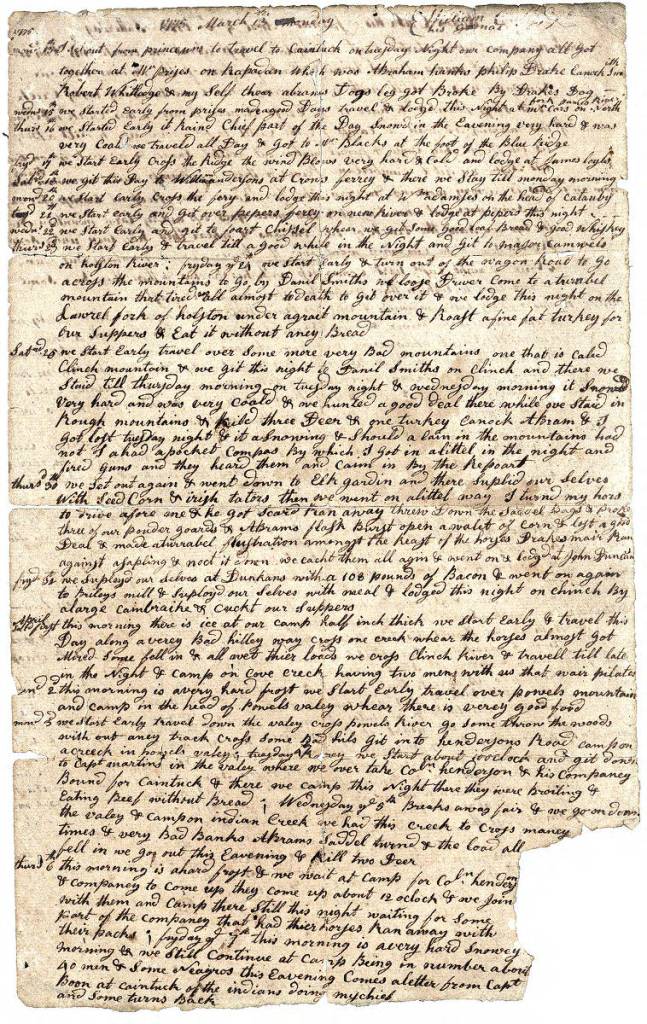 1775 March 13th monday
William
his Jurnal
mon 13th I set out from prince wm to travel to Caintuck on tuesday Night our company all Got
together at Mr Prises on Rapadan Which was Abraham hanks philip Drake Eanock Smith
Robert Whitledge & my Self thear abrams Dogs leg got Broke By Drakes Dog
wedns 15 we started early from prises made a good Days travel & lodge this Night on North
thurs 16 we started Early it Raind Chief part of the Day Snowd in the Eavening very hard & was
very Coald we traveld all Day & got to Mr Blacks at the foot of the Blue Ridge
fryd 17 we start Early Cross the Ridge the wind Blows very hard & Cold and lodge at James loyls
Satrd 18 we git this Day to William andersons at Crows ferrey & there we Stay till monday morning
mond 20 we Start early Cross the fery and lodge this night at Wm adamses on the head of Catauby
tuesd 21 we start early and git over pepers ferey on new River & lodge at pepers this night
wedns 22 we Start early and git to foart Chissel whear we git some good loaf Bread & good whiskey
thursd 23 we Start Early & travel till a good while in the Night and git to major Cammels
on holston River; fryday ye 24 we start early & turn out of the wagon Road to go
across the mountains to go by Danil Smiths we loose Driver Come to a turabel
mountain that tired us all almost to death to git over it & we lodge this night on the
Lawrel fork of holston under agrait mountain & Roast a fine fat turkey for
our Suppers & Eat it without aney Bread
Satrd 25 we Start Early travel over Some more very Bad mountains one that is Caled
Clinch mountain & we git this night to Danil Smiths on Clinch and there we
Staid till thursday morning on tuesday night & wednesday morning it Snowed
Very hard and was very Coald & we hunted a good deal there while we Staid in
Rough mountains & kild three Deer & one turkey Eanock Abram & I
got lost tuesday night & it a snowing & Should a lain in the mountains had
not I a had a pocket Compas By which I got in a littel in the night and
fired guns and they heard them and caim in By the Repoart
thursd 30 we Set out again & went down to Elk gardin and there Suplid our Selves
With Seed Corn & irish tators then we went on a littel way I turnd my hors
to drive afore me & he got scard Ran away threw Down the Saddel Bags & Broke
three of our powder goards & Abrams flask Burst open a walet of Corn & lost a good
Deal & made a turrabel flustration amongst the Reast of the horses Drakes mair Ran
against a sapling & noct it down we cacht them all agin & went on & lodgd at John Duncans
fryd 31 we suployd our Selves at Dunkans with a 108 pounds of Bacon & went on again
to Brileys mill & Suployd our Selves with meal & lodged this night on clinch By
a large cainbraike & cuckt our Suppers
April
Satrd first this morning there is ice at our camp half inch thick we start Early & travel this
Day along a verey Bad hilley way cross one creek whear the horses almost got
Mired Some fell in & all wet thier loads we cross Clinch River & travell till late
in the Night & camp on cove creek having two men with us that wair pilates
Sund 2 this morning is a very hard frost we Start Early travel over powels mountain
and camp in the head of Powels valey whear there is verey good food
mond 3 we Start Early travel down the valey cross powels River go some throw the woods
with out aney track cross some Bad hils git into hendersons Road camp on
a creek in powels valey; tuesday ye 4 we Start about 10 oclock and git down
to Capt martins in the valey where we over take Coln henderson & his Companey
Bound for Caintuck & there we camp this Night there they were Broiling &
Eating Beef without Bread; Wednesday ye 5th Breaks away fair & we go on down
the valey & camp on indian Creek we had this creek to Cross maney
times & very Bad Banks Abrams Saddel turnd & the load all
fell in we go out this Eavening & kill two Deer
thursd 6 this morning is a hard frost & we wait at Camp for Coln henderson
& companey to come up they come up about 12 oclock & we Join
with them and Camp there Still this night waiting for Some
part of the companey that had thier horses Ran away with
their packs; fryday ye 7th this morning is a very hard Snowey
morning & we Still Continue at Camp Being in number about
40 men & Some Neagros this Eavening Comes a letter from Capt
Boon at caintuck of the indians doing myschief
and Some turns Back